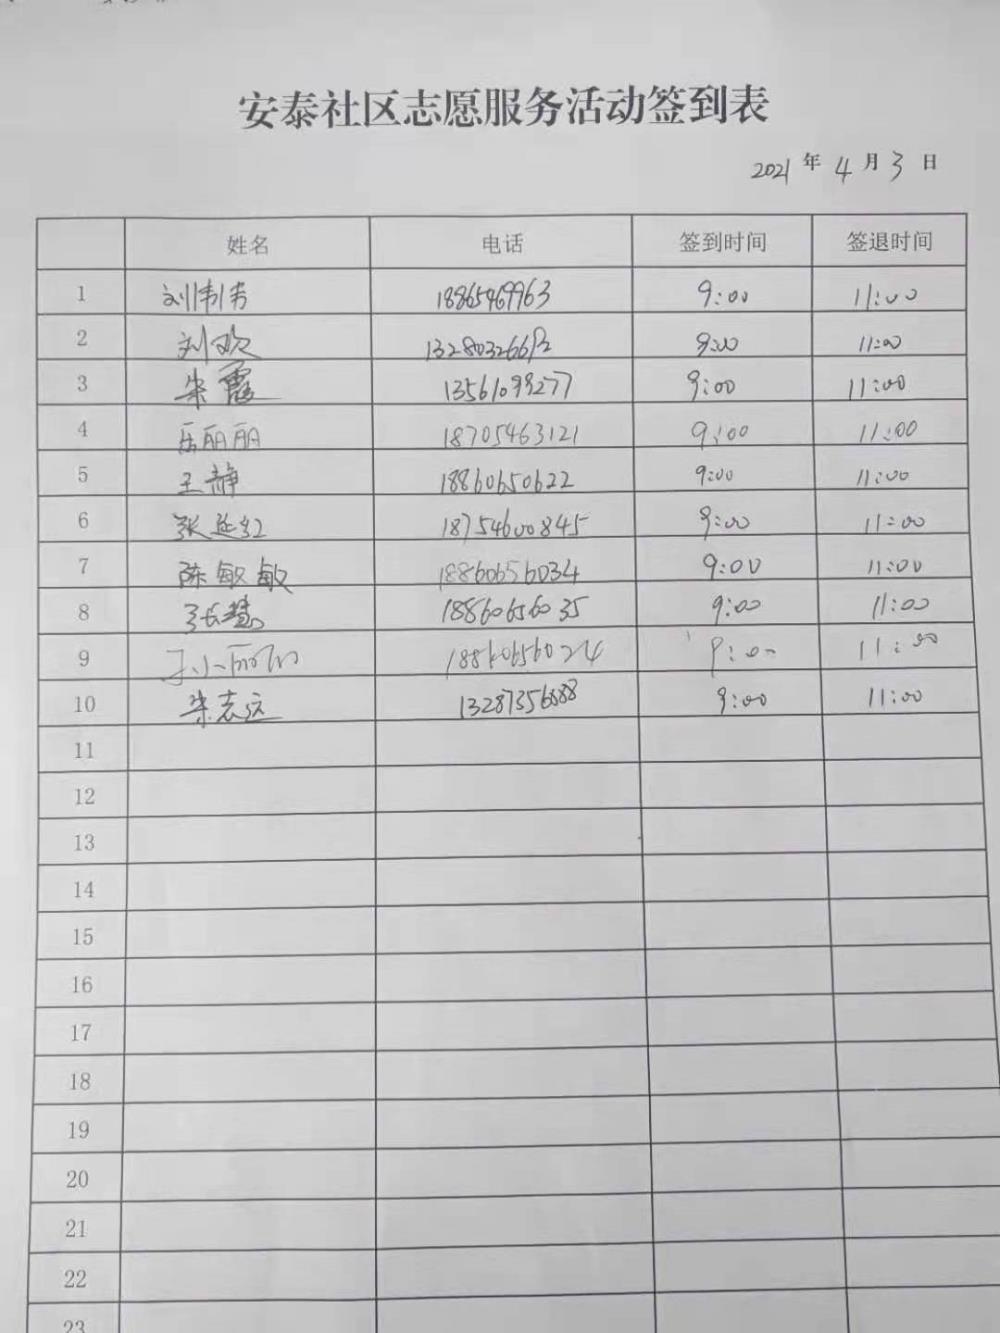 安泰社区志愿服务活动签到表
2021 年 4 月 3 日
姓名 电话 签到时间 签退时间
1 18865469963 9:00 11:00
2 刘欢 9:00 11:00
3 朱霞 13561099277 9:00 11:00
4 岳丽丽 18705463121 9:00 11:00
5 王静 18860650622 9:00 11:00
6 张延红 18754600845 9:00 11:00
7 陈敏敏 18860656034 9:00 11:00
8 张慧 18860656035 9:00 11:00
9 18860656024 9:00 11:00
10 朱志远 13287356888 9:00 11:00
11
12
13
14
15
16
17
18
19
20
21
22
23